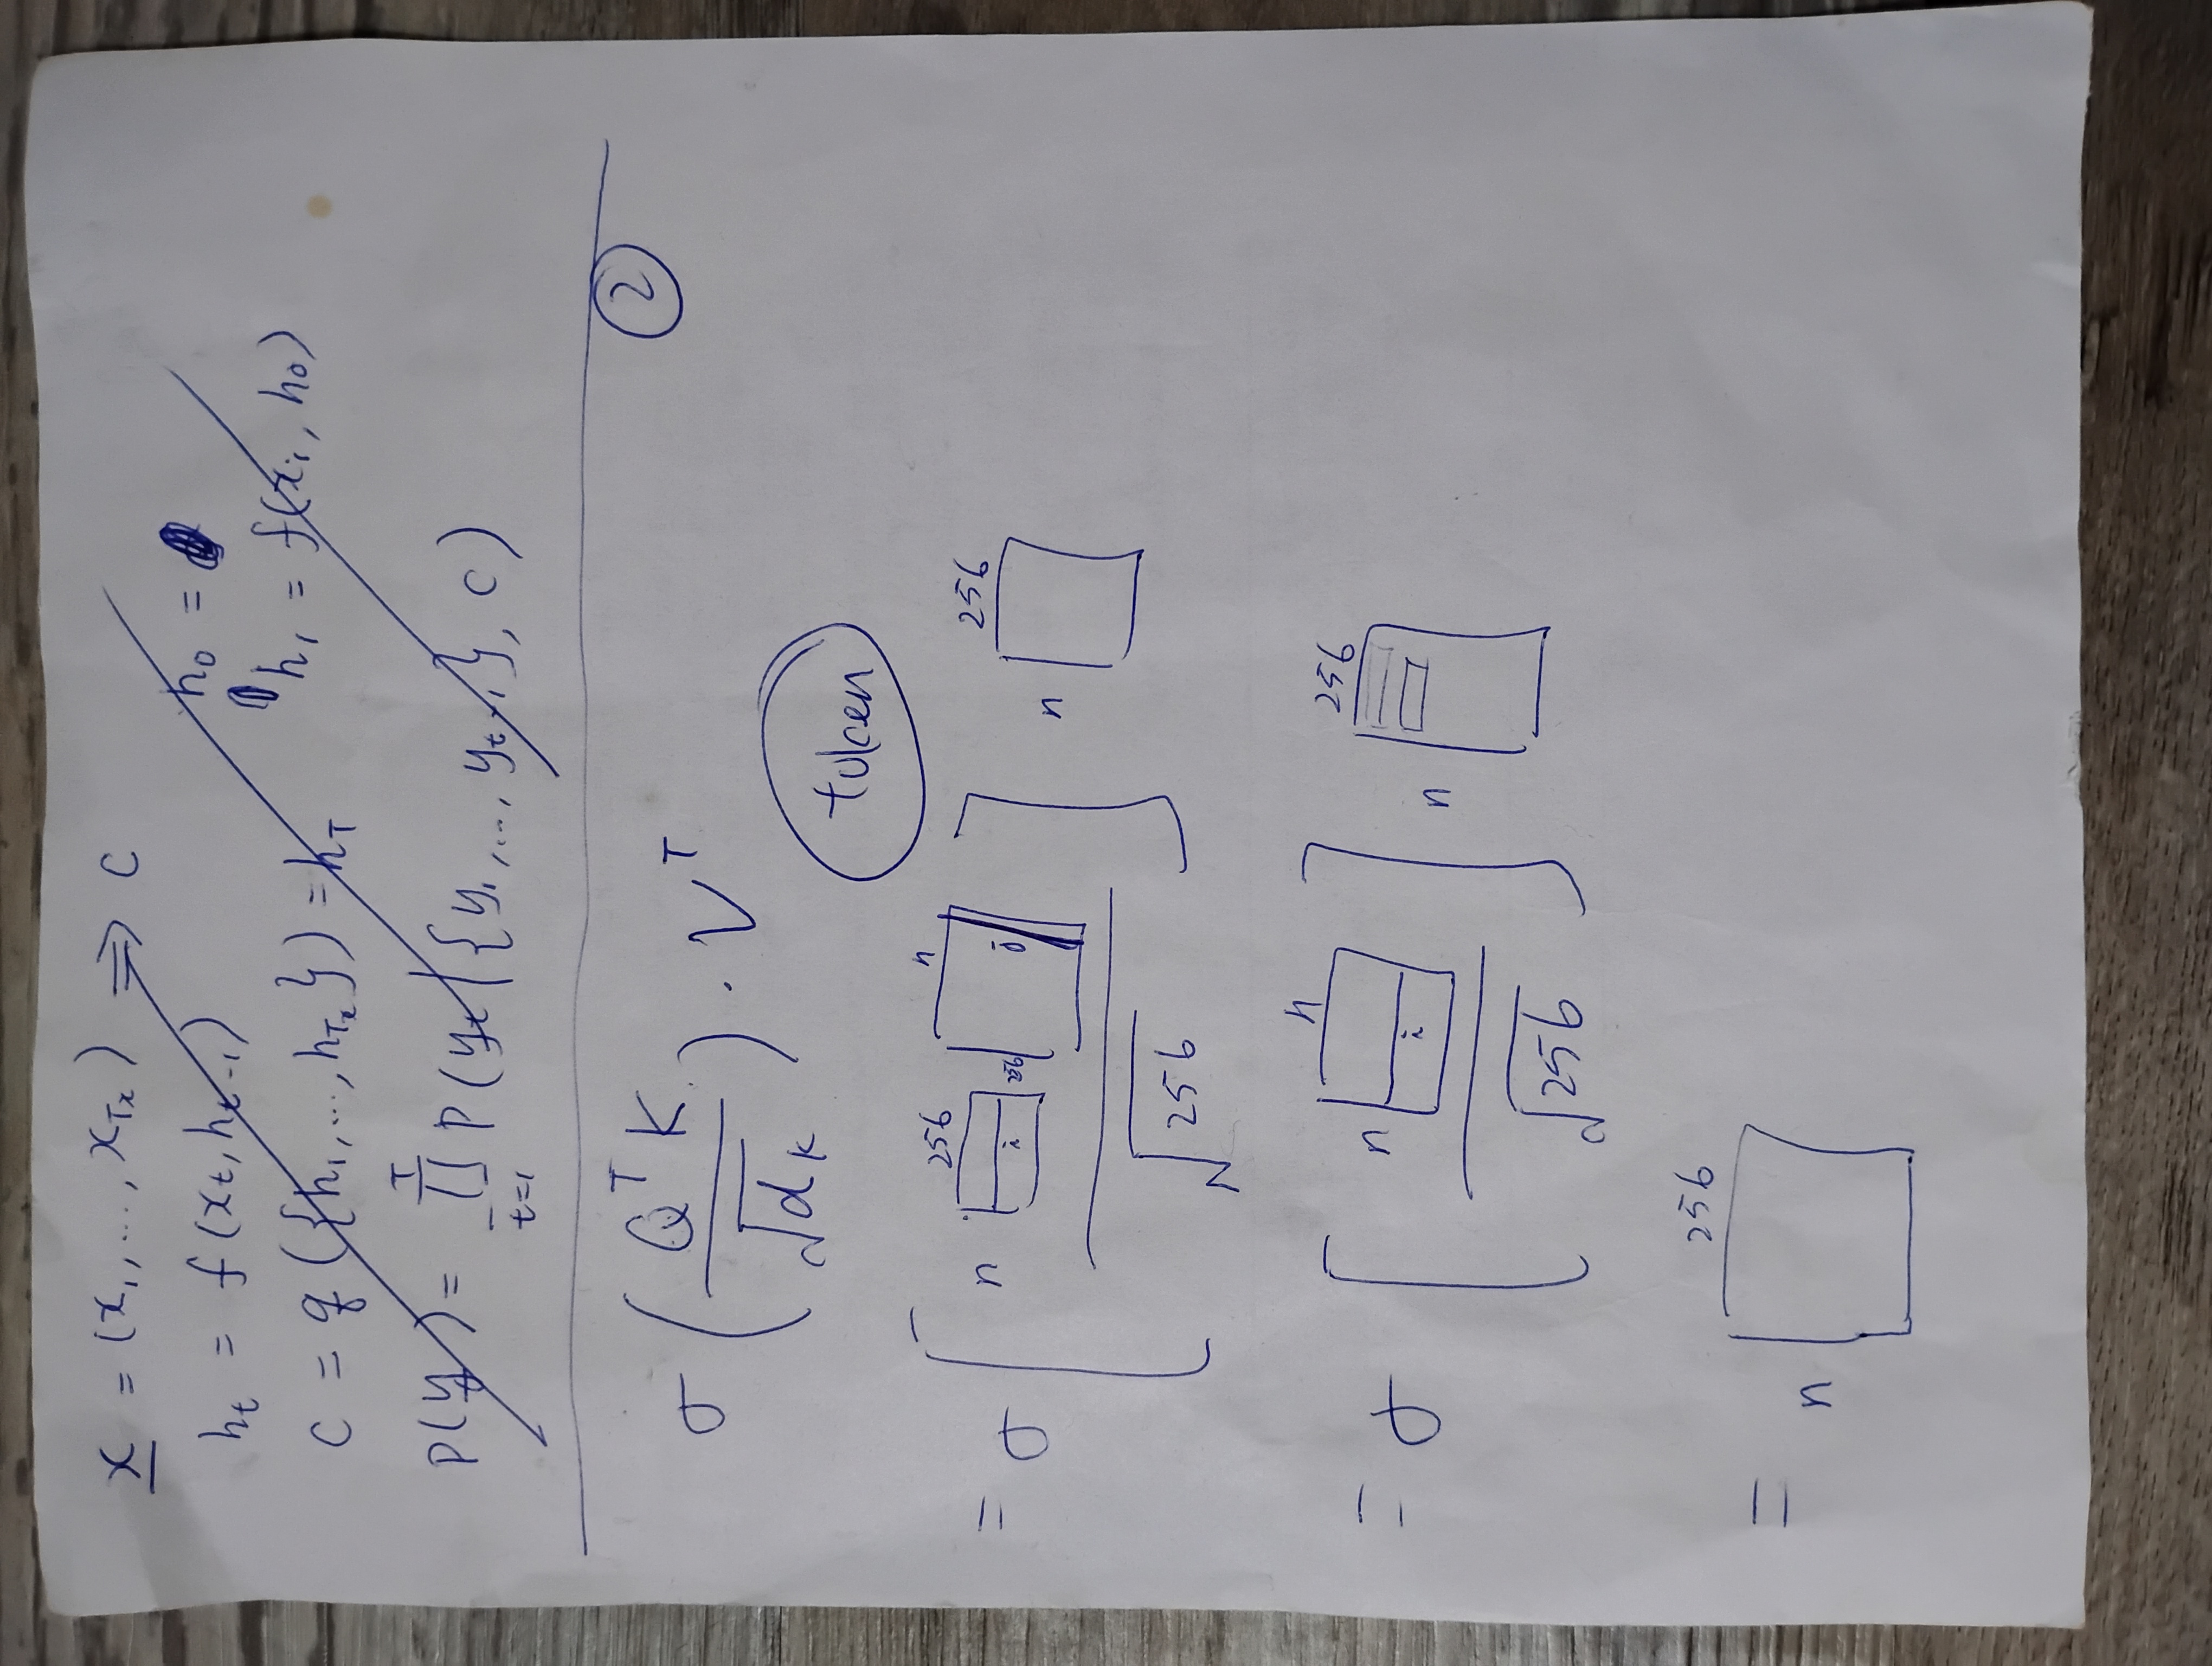 x = (x₁,...,x_Tx) ⇒ c
h_t = f(x_t, h_t-1)
h₀ =
h₁ = f(x₁, h₀)
c = q({h₁,...,h_Tx}) = h_T
p(y) = ∏ t=1 T p(y_t | {y₁,..., y_t-1}, c)
2
σ( Q^T K / √d_K ) · V^T
token
= σ[ n 256 i 256 n j / √256 ] n 256
= σ[ n n i / √256 ] n 256
= n 256